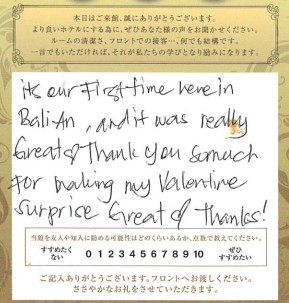 本日はご来館、誠にありがとうございます。
より良いホテルにする為に、ぜひあなた様の声をお聞かせください。
ルームの清潔さ、フロントでの接客…、何でも結構です。
一言でもいただければ、それが私たちの学びとなり励みになります。
its our First time here in
Bali An, and it was really
Great & Thank you so much
For making my Valentine
surprise Great & Thanks!
当館を友人や知人に勧める可能性はどのくらいあるか、点数で教えてください。
すすめたくない 0 1 2 3 4 5 6 7 8 9 10 ぜひすすめたい
ご記入ありがとうございます。フロントへお渡しください。
ささやかなお礼をさせていただきます。